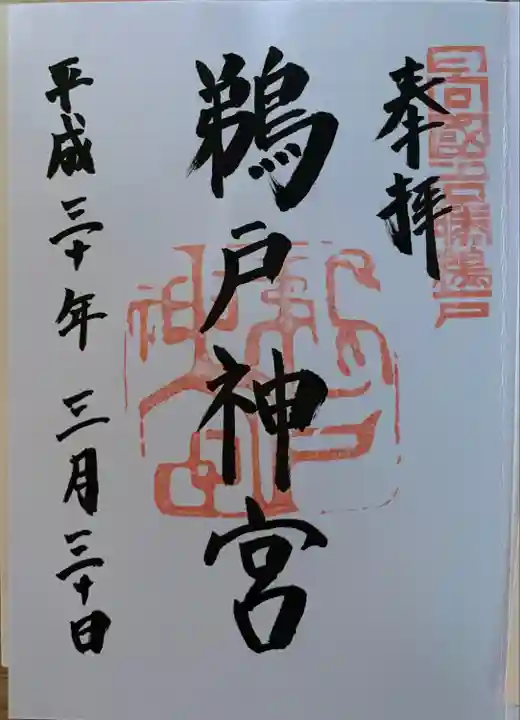 奉拝
日向國古勝鵜戸
鵜戸神宮
鵜戸神宮
平成三十年三月三十日